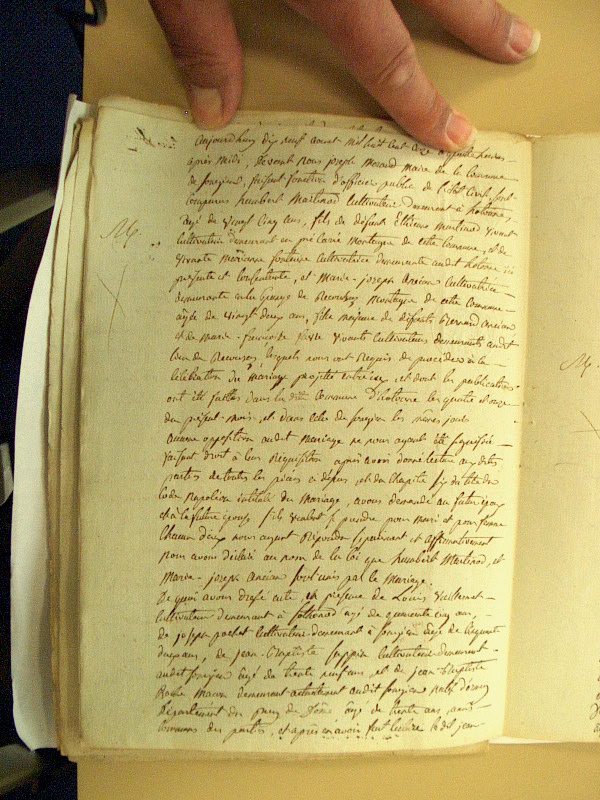 aujourdhuy dix neuf aoust mil huit cent onze à heures
après midi, devant nous joseph Morand maire de la commune
de songieu, faisant fonction d'officier public de l'état civil, sont
comparus humbert Martinod cultivateur demeurant à hotonne,
agé de vingt cinq ans, fils de défunt Etienne Martinod vivant
cultivateur demeurant en montagne de cette commune, et de
vivante Marianne cultivatrice demeurante audit hotonne ici
présente et consentente, et Marie-joseph Ancian cultivatrice
demeurante en la Grange de montagne de cette commune
agée de vingt deux ans, fille majeure de défunts Bernard Ancian
et de Marie-françoise vivants cultivateurs demeurants audit
lieu de lesquels nous ont requis de procéder à la
célébration du Mariage projetté entre eux, et dont les publications
ont été faittes dans la dite commune d'hotonne les quatre et onze
du présent mois, et dans celle de songieu les mêmes jours
aucune opposition audit Mariage ne nous ayant été signifiée
faisant droit à leur réquisition après avoir donné lecture aux dites
parties de toutes les pièces ci dessus, et du chapitre six du titre du
Code Napoléon intitulé du Mariage, avons demandé au futur époux
et à la future épouse s'ils veulent se prendre pour Mari et pour femme
chacun d'eux nous ayant répondu séparément et affirmativement
nous avons déclaré au nom de la loi que humbert Martinod, et
Marie-joseph Ancian sont unis par le Mariage.
De quoi avons dressé acte, en présence de Louis
cultivateur demeurant à sothonod agé de quarente cinq ans,
de joseph cultivateur demeurant à songieu agé de cinquante
deux ans, de jean-Baptiste cultivateur demeurant
audit songieu agé de trente neuf ans et de jean Baptiste
Roche Maçon demeurant audit songieu
département du puy de Dôme agé de trente ans, amis
communs des parties, et après en avoir fait lecture le dit jean
M
M